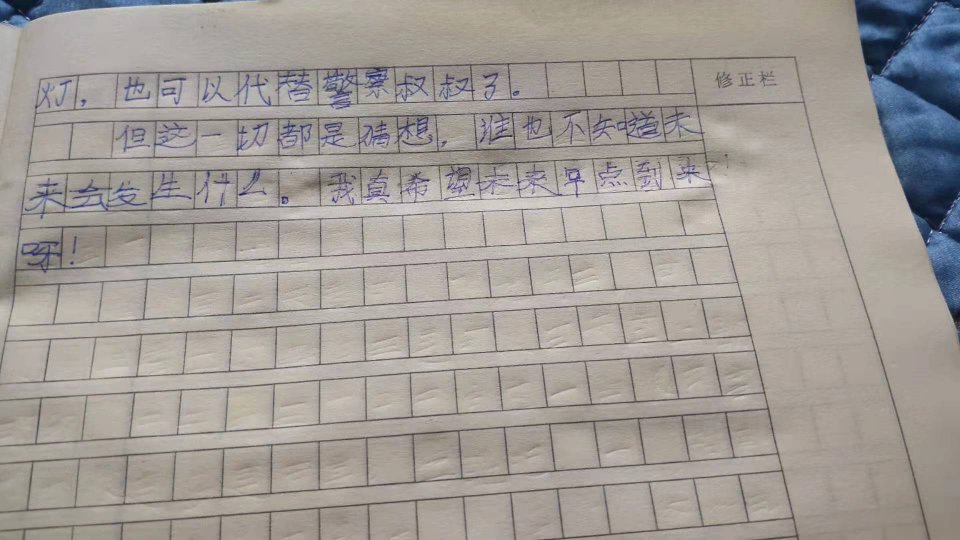 灯，也可以代替警察叔叔了。
修正栏
但这一切都是猜想，谁也不知道未
来会发生什么。我真希望未来早点到来
呀！